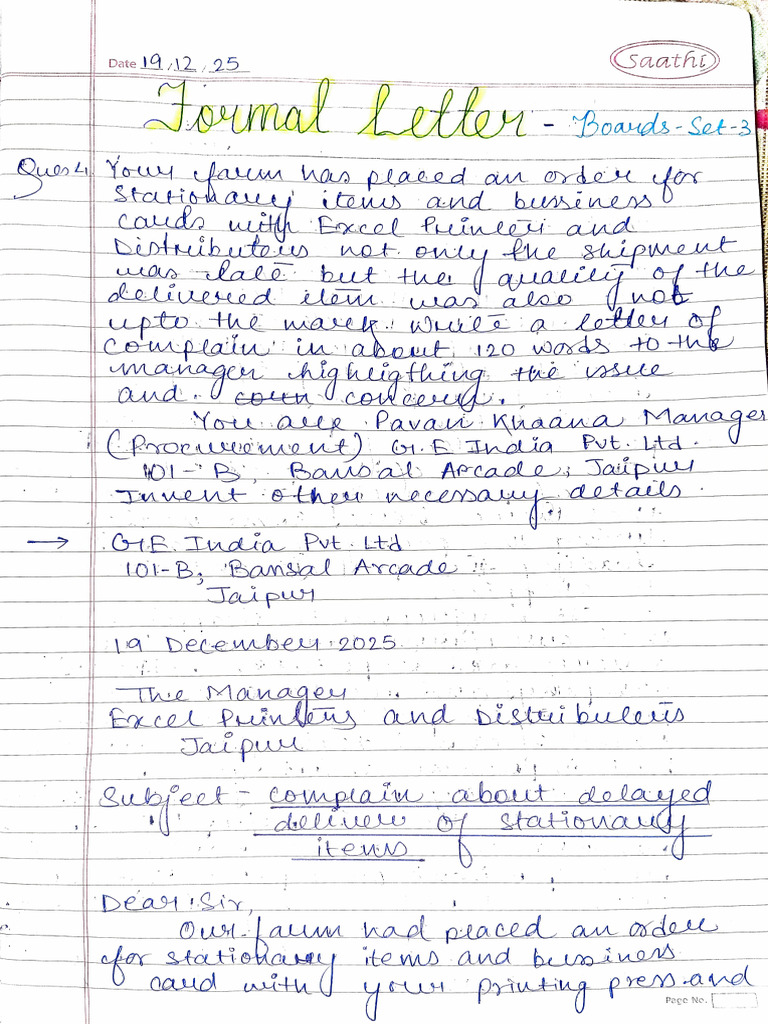 Date 19,12,25
Saathi
Formal Letter - Boards-Set-3
Ques 4. Your farm has placed an order for
stationary items and bussiness
cards with Excel Printers and
Distributers not only the shipment
was late but the quality of the
delivered item was also not
upto the mark. write a letter of
complain in about 120 words to the
manager higheigthing the issue
and concern.
You are Pavan Khaana Manager
(Procurement) G.E India Pvt. Ltd.
101-B, Bansal Arcade, Jaipur
Invent other necessary details.
→ G.E. India Pvt. Ltd
101-B, Bansal Arcade
Jaipur
19 December 2025
The Manager
Excel Printers and Distributers
Jaipur
Subject - complain about delayed
delivere of stationary
items
Dear Sir,
Our farm had placed an order
for stationary items and bussiness
card with your printing press and
Page No.